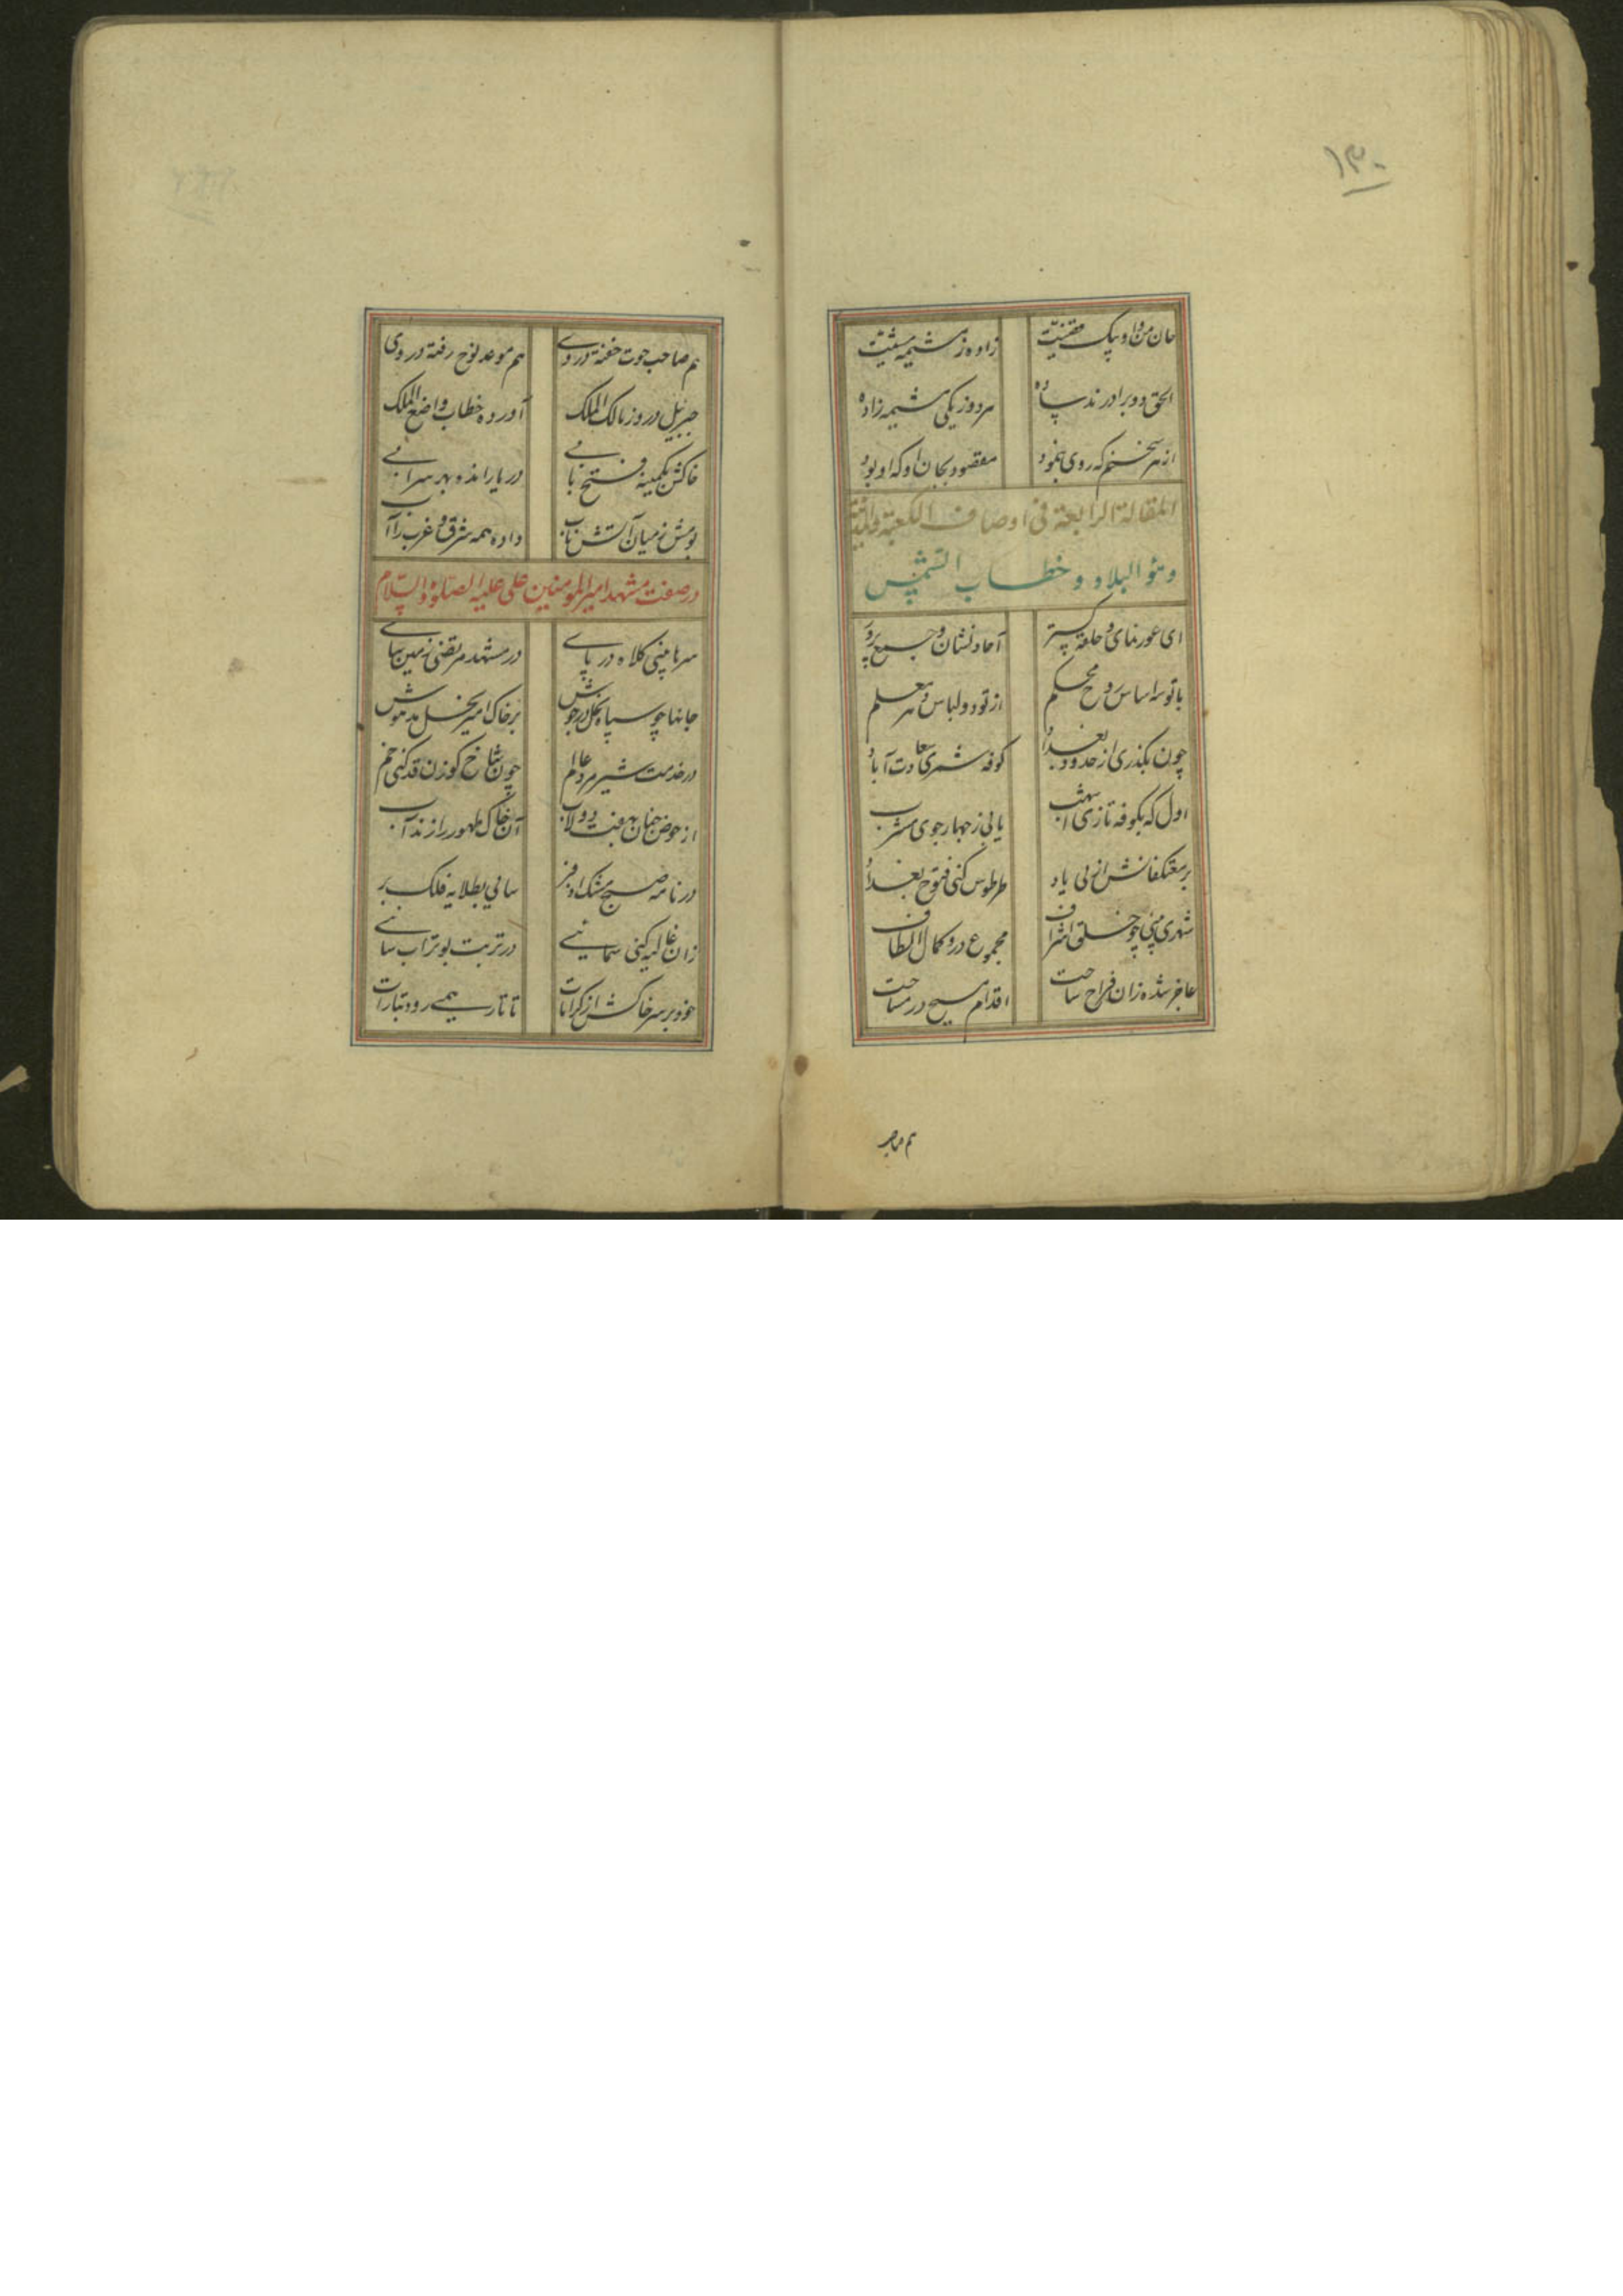 ۱۳۰
جان من و او بیک قضیت زاده ز مشیمه مشیت
الحق دو برادرند ساده هر دو ز یکی مشیمه زاده
از هر سخنم که روی بنمود مقصود بجان او که او بود
المقالة الرابعة فی اوصاف الکعبة
البلاد و خطاب الشمس
ای عور نمای و حله گستر آحاد نشان و جمع پرور
با تو سه اساس روح محکم از تو دو لباس هر معلم
چون بگذری از حدود بغداد کوفه شمری سعادت آباد
اول که بکوفه تازی اشهب یابی ز چهار جوی مشرب
بر معتکفانش از پی یاد طرطوس کنی فتوح بغداد
شهری بینی چو خلق اشراف مجموع درو کمال الطاف
عاجز شده زان فراح ساحت اقدام مسیح در مساحت
هم صاحب
هم صاحب حوت خفته در وی هم موعد نوح رفته در وی
جبریل درو ز مالک الملک آورده خطاب واضع الملک
خاکش بکمینه فتح بابی دریا رانده بهر سرابی
بومش ز میان آتش ناب داده همه شرق و غرب را آب
در صفت مشهد امیر المومنین علی علیه الصلوة والسلام
سرها بینی کلاه در پای در مشهد مرتضی زمین سای
جانها چو سپاه نحل در جوش بر خاک امیر نحل مدهوش
در خدمت شیر مرد عالم چون شاخ گوزن قد کنی خم
از حوض جنان بهفت دولاب آن خاک طهور را زند آب
در نافه صبح مشک اذفر سایی بطلایه فلک بر
زان غالیه کنی سمایی در تربت بوتراب سایی
خود بر سر خاکش از کرامات تا تار همی رود بتارات